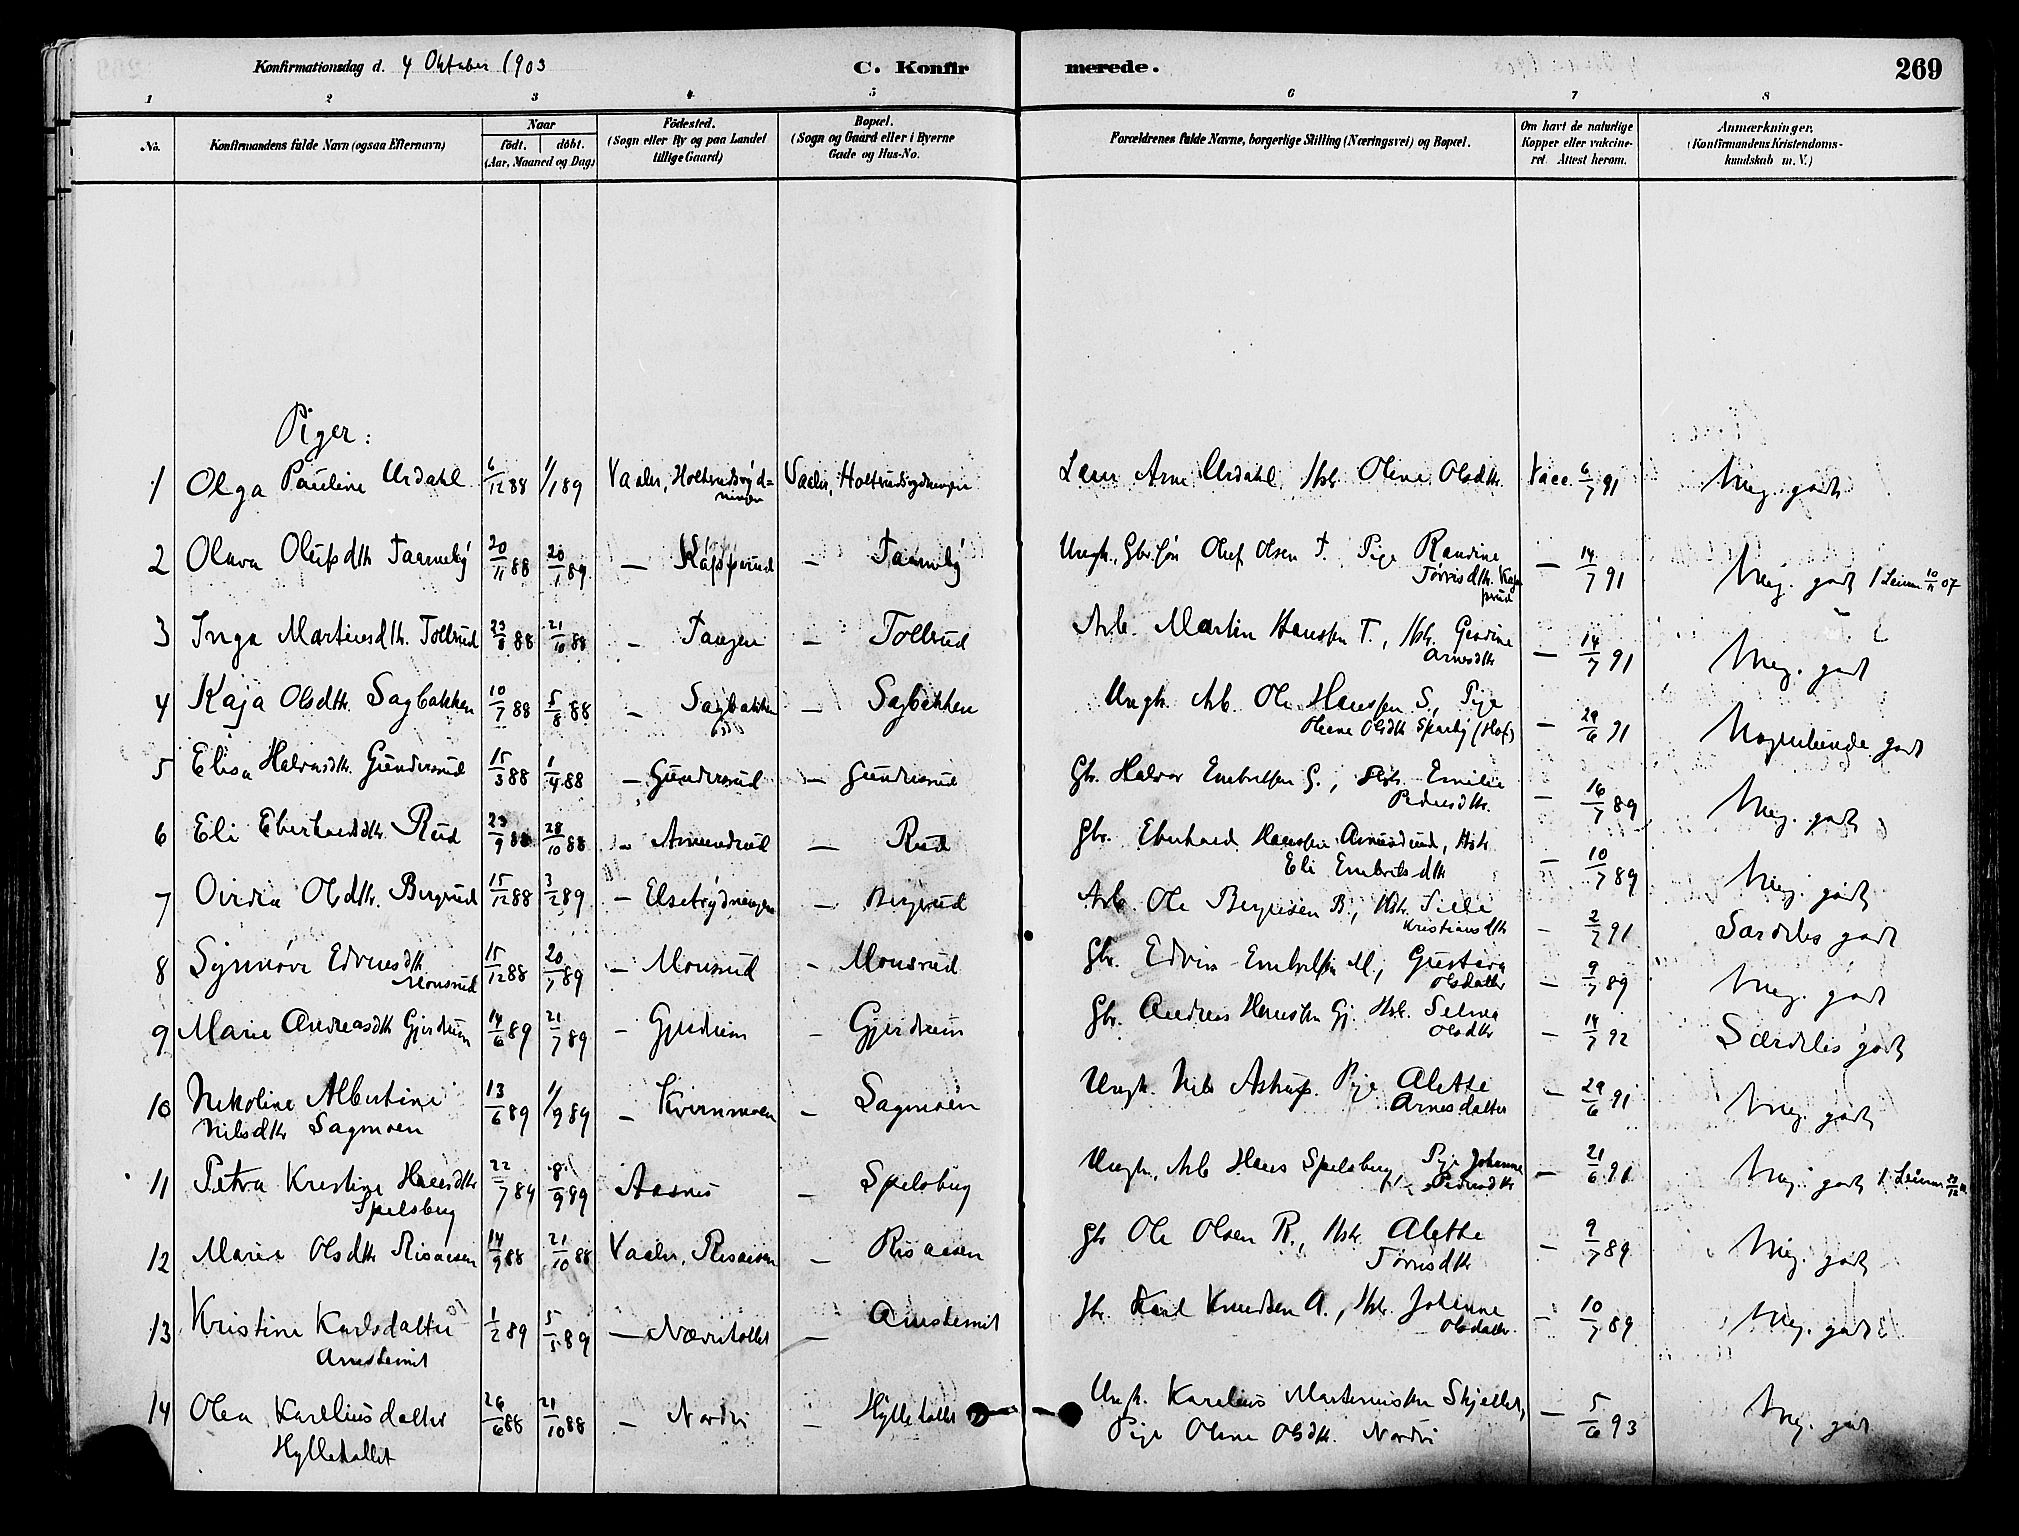 Konfirmationsdag d. 4 Oktober 1903
C. Konfirmerede.
269
1 2 3 4 5 6 7 8
No.
Konfirmandens fulde Navn (ogsaa Efternavn)
Naar
födt. döbt.
(Aar, Maaned og Dag)
Födested.
(Sogn eller By og paa Landet
tillige Gaard)
Bopæl.
(Sogn og Gaard eller i Byerne
Gade og Hus-No.
Forældrenes fulde Navne, borgerlige Stilling (Næringsvei) og Bopæl.
Om havt de naturlige
Kopper eller vakcine-
ret. Attest herom.
Anmærkninger.
(Konfirmandens Kristendoms-
kundskab m. V.)
Piger:
1 Olga Pauline Urdahl 6/12 88 1/1 89 Vaaler, Holterudsryd=
ningen Vaaler, Holterudsrydningen Arne Urdahl Hst. Oline Olsdtr. Vacc. 6/7 91 Meg. godt
2 Olava Olufsdtr Taarneby 20/11 88 20/1 89 — Kaspperud — Taarneby Ungk. Gbr.søn Oluf Olsen T. Pige Randine
Tørrisdtr. — 14/7 91 Meg. godt 07
3 Inga Martinsdtr. Tollrud 23/8 88 21/10 88 — Tangen — Tollrud Arb. Martin Hanssen T., Hst. Gerdine
Arnesdtr — 14/7 91 Meg. godt
4 Kaja Olsdtr. Sagbakken 10/7 88 5/8 88 — Sagbakken — Sagbakken Ungk. Arb. Ole Hanssen S., Pige
Oleane Olsdtr Sparby (Hof) — 29/6 91 Nogenlunde godt
5 Elisa Halvorsdtr. Gundersrud 15/3 88 1/4 88 — Gundersrud — Gundersrud Gbr. Halvor Embretsen G., Hst. Emilie
Pedersdtr. — 16/7 89 Meg. godt
6 Eli Eberhardsdtr. Rud 23/9 88 28/10 88 — Amundrud — Rud Gbr. Eberhard Hanssen Amundrud, Hst.
Eli Embretsdtr — 10/7 89 Meg. godt
7 Ovidia Olsdtr. Bergrud 15/12 88 3/2 89 — Elsetrydningen — Bergrud Arb. Ole Bergersen B., Hst.
Kristiansdtr — 2/7 91 Særdeles godt
8 Synnøve Edvinsdtr
Monsrud 15/12 88 20/1 89 — Monsrud — Monsrud Gbr. Edvin Embretsen M., Gustava
Olsdatter — 9/7 89 Meg. godt
9 Marie Andreasdtr Gjerdrum 14/6 89 21/7 89 — Gjerdrum — Gjerdrum Gbr. Andreas Hanssen Gj. Hst. Selma
Olsdtr — 14/7 92 Særdeles godt
10 Nikoline Albertine
Nilsdtr Sagmoen 13/6 89 1/9 89 — Kvernmoen — Sagmoen Ungk. Nils Astrup. Pige Alette
Arnesdatter — 29/6 91 Meg. godt
11 Petra Kristine Hansdtr
Spelsberg 22/7 89 8/9 89 Aasnes — Spelsberg Ungk. Arb Hans Spelsberg, Pige Johanne
Pedersdtr — 21/6 91 Meg. godt
12 Marie Olsdtr Risaasen 14/9 88 21/10 88 Vaaler, Risaasen — Risaasen Gbr Ole Olsen R., Hst. Alette
Tørresdtr — 9/7 89 Meg. godt
13 Kristine Karlsdatter
Arnestemet 1/2 89 5/5 89 — Nævritallet — Arnestemet Gbr. Karl Knudsen A., Hst. Johanne
Olsdatter — 10/7 89 Meg. godt
14 Olea Kareliusdatter
Hyllehallet 26/6 88 21/10 88 — Nordvi — Hyllehallet Ungk. Karelius Martiniussen Skjellet,
Pige Oline Olsdtr. Nordvi — 5/6 93 Meg. godt